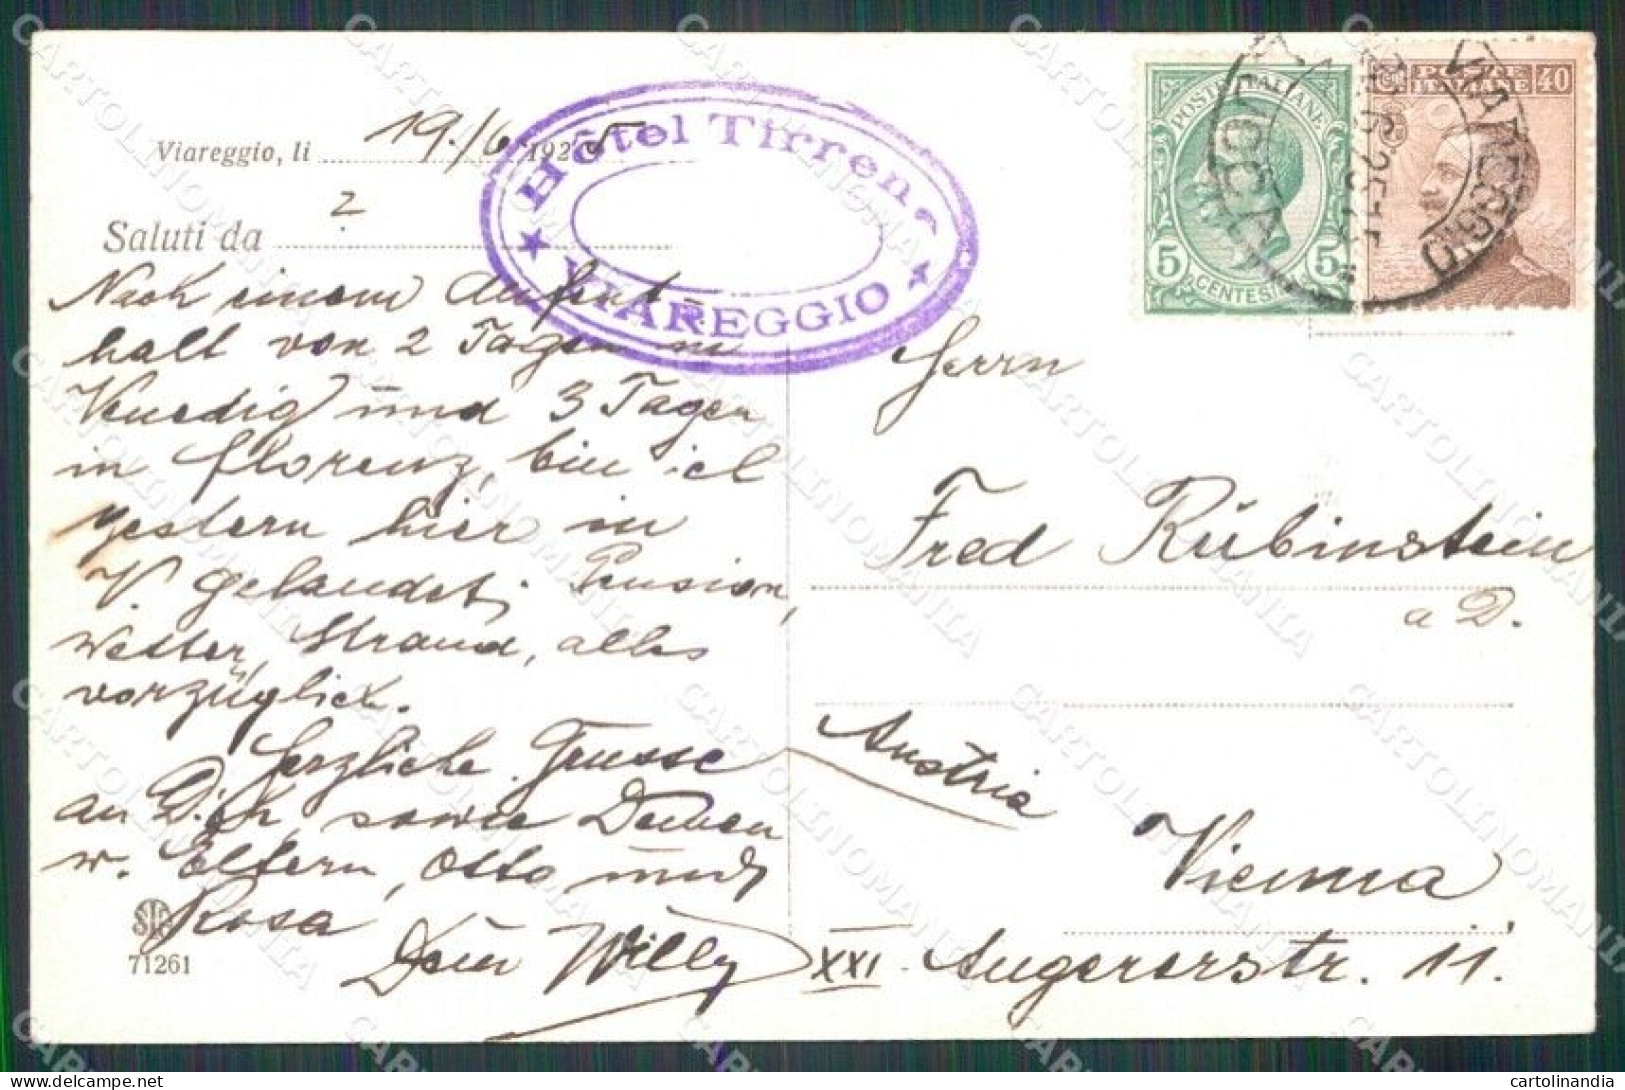 Viareggio, li 19./6 1925
Saluti da
2
Hôtel Tirreno
VIAREGGIO
POSTE ITALIANE
5 CENTESIMI 5
POSTE
ITALIANE 40
VIAREGGIO
LUCCA
Nach einem Aufent-
halt von 2 Tagen in
Venedig und 3 Tagen
in Florenz, bin ich
gestern hier in
V. gelandet; Pension,
Wetter, Strand, alles
vorzüglich.
Herzliche Grüsse
an Dich, sowie Deinen
w. Eltern, Otto und
Rosa
Dein Willy
71261
Herrn
Fred Rubinstein
a D.
Austria
Vienna
XXI. Angererstr. 11.
CARTOLINOMANIA
cartolinandia